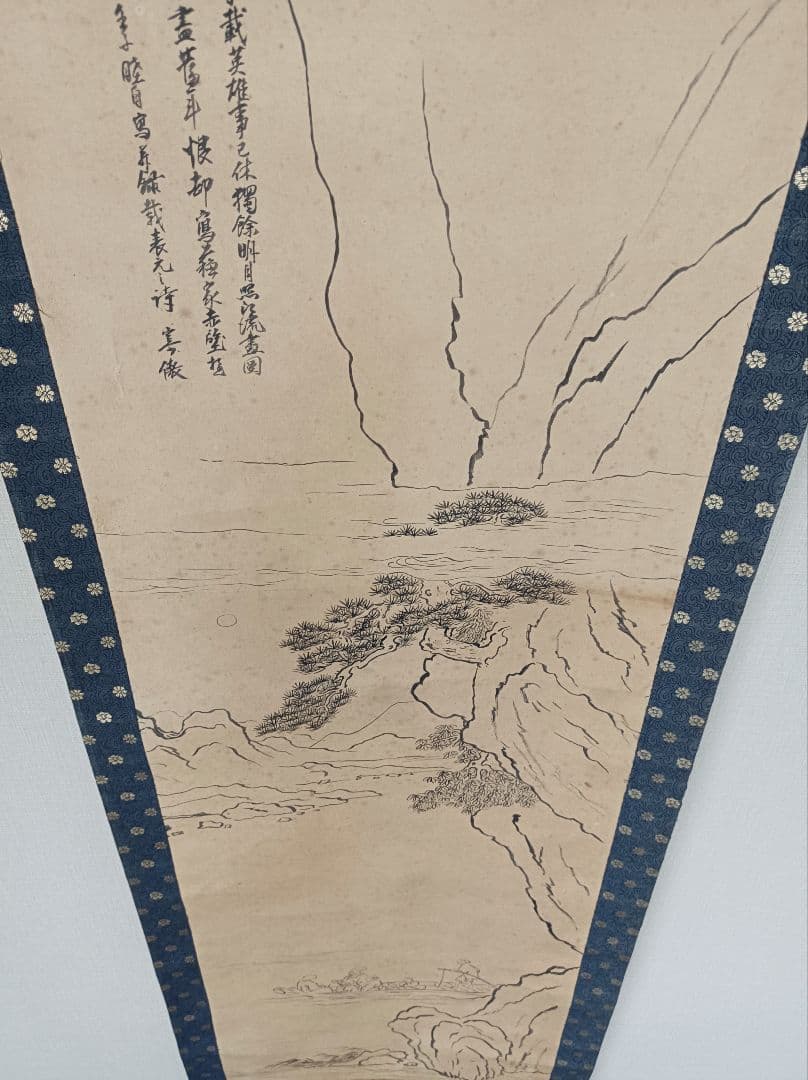 載英雄事已休獨餘明月照江流畫圖
盡舊年恨却寫蘇家赤壁
睦月寫并錄戴表元之詩